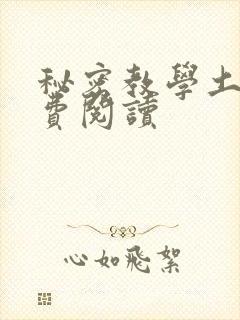 秘密教學土
費閱讀
心如飛絮